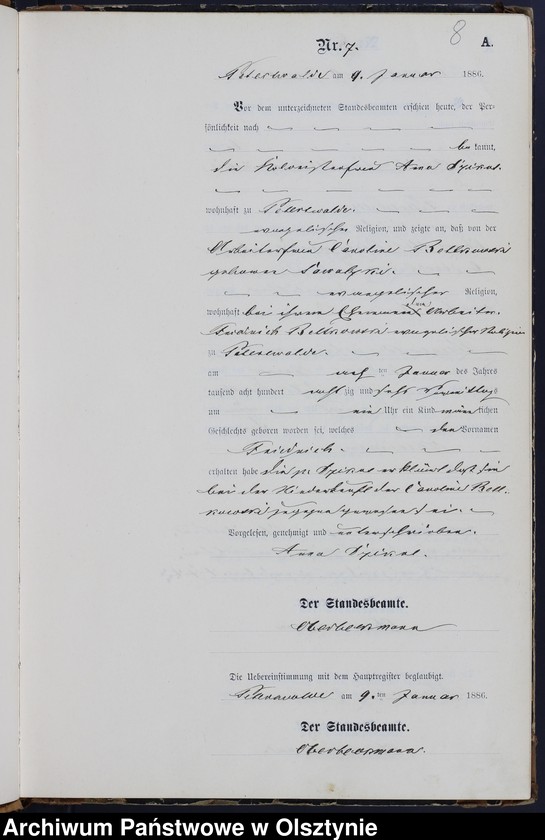 8
Nr. 7. A.
Peterswalde am 9. Januar 1886.
Vor dem unterzeichneten Standesbeamten erschien heute, der Per-
sönlichkeit nach
bekannt,
die Anna
wohnhaft zu Peterswalde.
evangelischer Religion, und zeigte an, daß von der
Arbeiterfrau Caroline Bottkowski
geborenen
evangelischer Religion,
wohnhaft bei ihrem Ehemann dem Arbeiter
Friedrich Bottkowski evangelischer Religion
zu Peterswalde.
am acht ten Januar des Jahres
tausend acht hundert achtzig und sechs Vormittags
um ein Uhr ein Kind männlichen
Geschlechts geboren worden sei, welches den Vornamen
Friedrich.
erhalten habe die p. erklärt daß sie
bei der Niederkunft der Caroline Bott-
kowski zugegen gewesen sei.
Vorgelesen, genehmigt und unterschrieben.
Anna
Der Standesbeamte.
Oberbeckmann
Die Uebereinstimmung mit dem Hauptregister beglaubigt.
Peterswalde am 9.ten Januar 1886.
Der Standesbeamte.
Oberbeckmann.
Archiwum Państwowe w Olsztynie